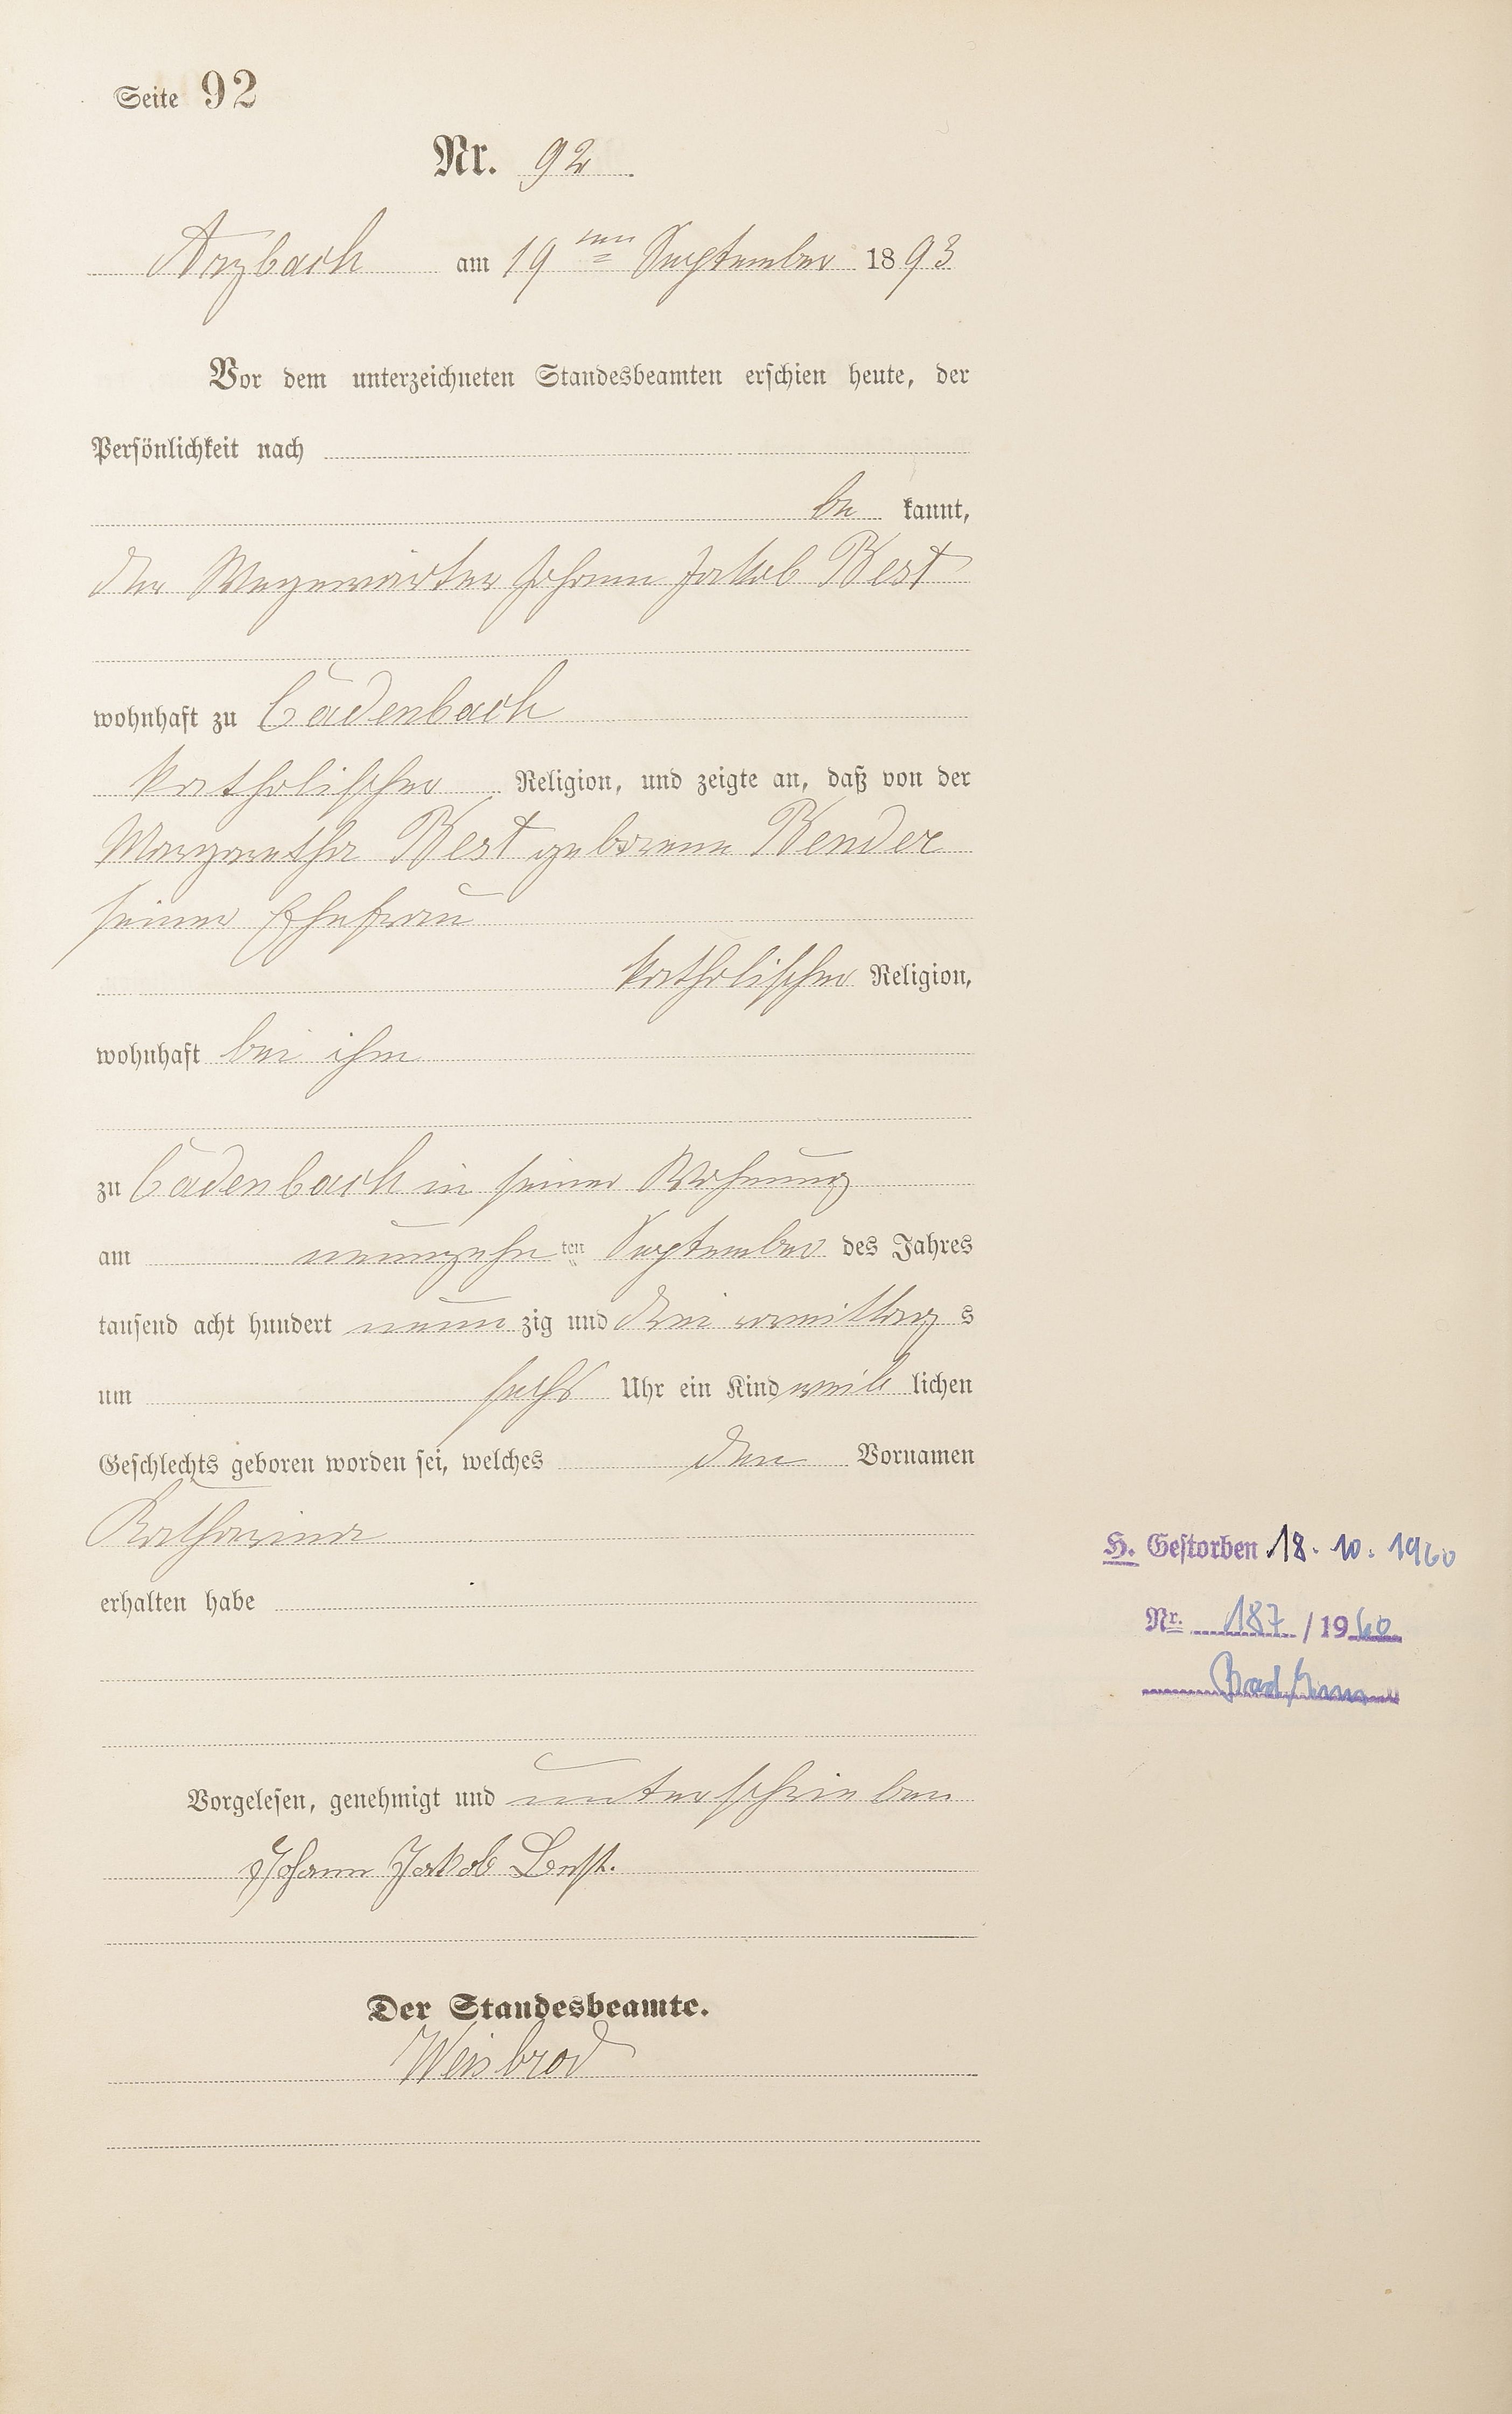 Seite 92
Nr. 92
Arzbach am 19ten September 1893
Vor dem unterzeichneten Standesbeamten erschien heute, der
Persönlichkeit nach
be kannt,
der Wegewärter Johann Jakob Best
wohnhaft zu Cadenbach
katholischer Religion, und zeigte an, daß von der
Margaretha Best geborene Bender
seiner Ehefrau
katholischer Religion,
wohnhaft bei ihm
zu Cadenbach in seiner Wohnung
am neunzehnten September des Jahres
tausend acht hundert neunzig und drei vormittags
um sechs Uhr ein Kind weiblichen
Geschlechts geboren worden sei, welches den Vornamen
Katharina
erhalten habe
H. Gestorben 18. 10. 1960
Nr. 187 / 1960
Bad Ems
Vorgelesen, genehmigt und unterschrieben
Johann Jakob Best.
Der Standesbeamte.
Weisbrod